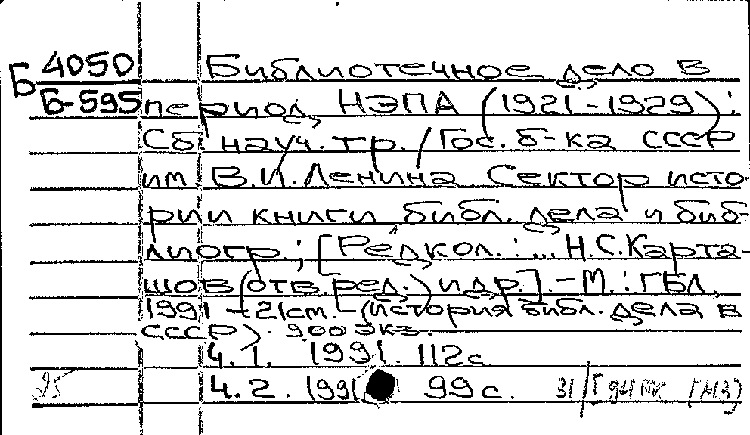 Б 4050 Библиотечное дело в
Б-595 период НЭПА (1921-1929):
Сб науч. тр. / Гос. б-ка СССР
им В.И. Ленина. Сектор исто-
рии книги библ. дела и биб-
лиогр.; [Редкол.: ... Н.С. Карта-
шов (отв. ред.) и др.]. - М.: ГБЛ,
1991 - 21см. - (история библ. дела в
СССР). 900 экз.
Ч.1. 1991. 112с.
95 Ч.2. 1991 99с. 31/